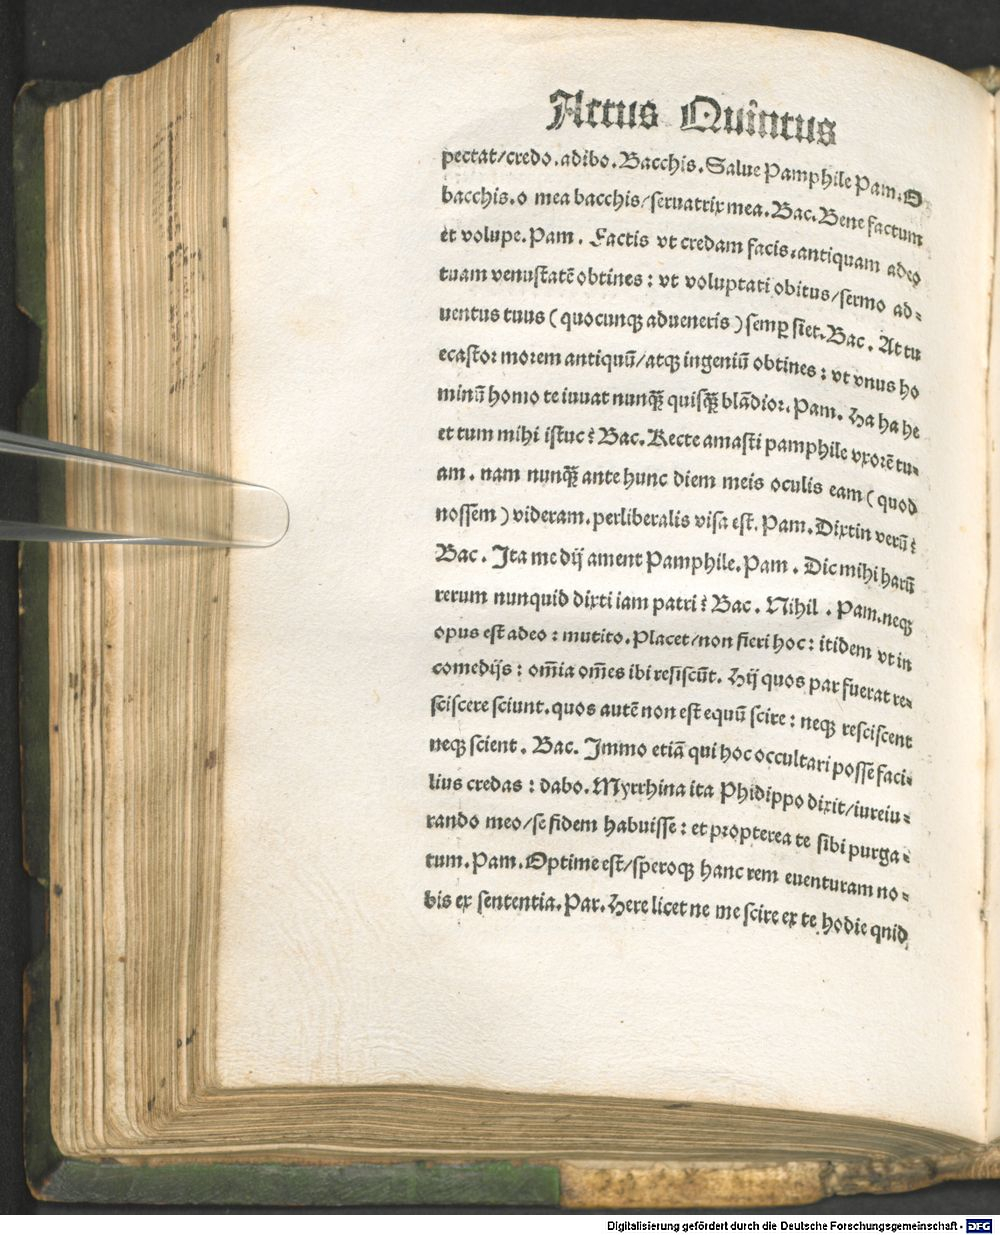 Actus Quintus
pectat/credo.adibo.Bacchis.Salue Pamphile Pam.O
bacchis.o mea bacchis/seruatrix mea.Bac.Bene factum
et volupe.Pam. Factis vt credam facis.antiquam adeo
tuam venustatē obtines: vt voluptati obitus/sermo ad⸗
uentus tuus (quocunqꝫ adueneris) semꝑ siet.Bac. At tu
ecastor morem antiquū/atqꝫ ingeniū obtines: vt vnus ho
minū homo te iuuat nunqꝫ̄ quisqꝫ̄ blādior.Pam. Ha ha he
et tum mihi istuc? Bac.Recte amasti pamphile vxorē tu⸗
am. nam nunqꝫ̄ ante hunc diem meis oculis eam (quod
nossem) videram.perliberalis visa est.Pam.Dixtin verū?
Bac. Ita me dij ament Pamphile.Pam. Dic mihi harū
rerum nunquid dixti iam patri? Bac. Nihil. Pam.neqꝫ
opus est adeo: mutito.Placet/non fieri hoc: itidem vt in
comedijs: om̄ia om̄es ibi resiscūt. Hij quos par fuerat re⸗
sciscere sciunt.quos autē non est equū scire: neqꝫ resciscent
neqꝫ scient. Bac. Immo etiā qui hoc occultari posse faci⸗
lius credas: dabo.Myrrhina ita Phidippo dixit/iureiu⸗
rando meo/se fidem habuisse: et propterea te sibi purga⸗
tum.Pam.Optime est/speroqꝫ hanc rem euenturam no⸗
bis ex sententia.Par.Here licet ne me scire ex te hodie quid
Digitalisierung gefördert durch die Deutsche Forschungsgemeinschaft - DFG